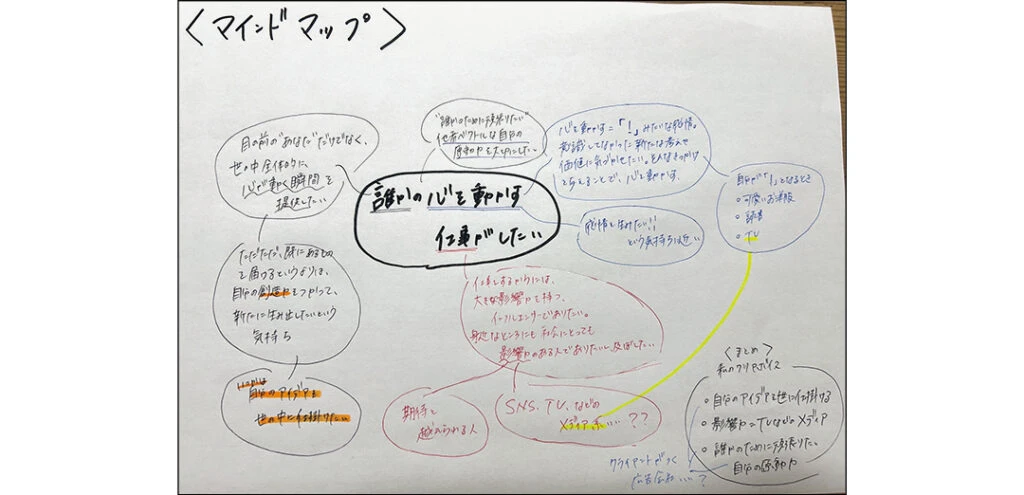 〈マインドマップ〉
誰かの心を動かす
仕事がしたい
目の前の"あなた"だけでなく、
世の中全体的に、
心が動く瞬間を
提供したい
ただただ、既にあるもの
を届けるというよりは、
自分の創造力をつかって、
新たに生み出したいという
気持ち
いつかは
自分のアイデアを
世の中に仕掛けたい
"誰かのために頑張りたい"
他者ベクトルな自分の
原動力を大切にしたい
心を動かす=「!」みたいな感情。
意識してなかった新たな考えや
価値に気づかせたい。そんなきっかけ
を与えることで、心を動かす。
自分が「!」となるとき
・可愛いお洋服
・読書
・TV
感情を生みたい!!
という気持ちに近い
仕事をするからには、
大きな影響力を持つ、
インフルエンサーでありたい。
身近なところにも社会にとっても
影響力のある人でありたいし及ぼしたい
期待を
超えられる人
SNS、TV、などの
メディア系…??
〈まとめ〉
私のクリアボイス
・自分のアイデアを世に仕掛ける
・影響力=TVなどのメディア
・誰かのために頑張りたい
自分の原動力
クライアントがつく
広告会社…?